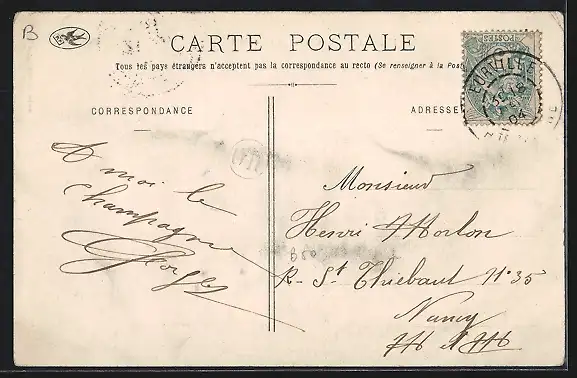 B
CARTE POSTALE
Tous les pays étrangers n'acceptent pas la correspondance au recto (Se renseigner à la Post
CORRESPONDANCE
ADRESSE
POSTES
EURVILLE
04
A moi le
Champagne
Georges
Monsieur
Henri Morlon
R. St Thiébaut N° 35
Nancy
M et M